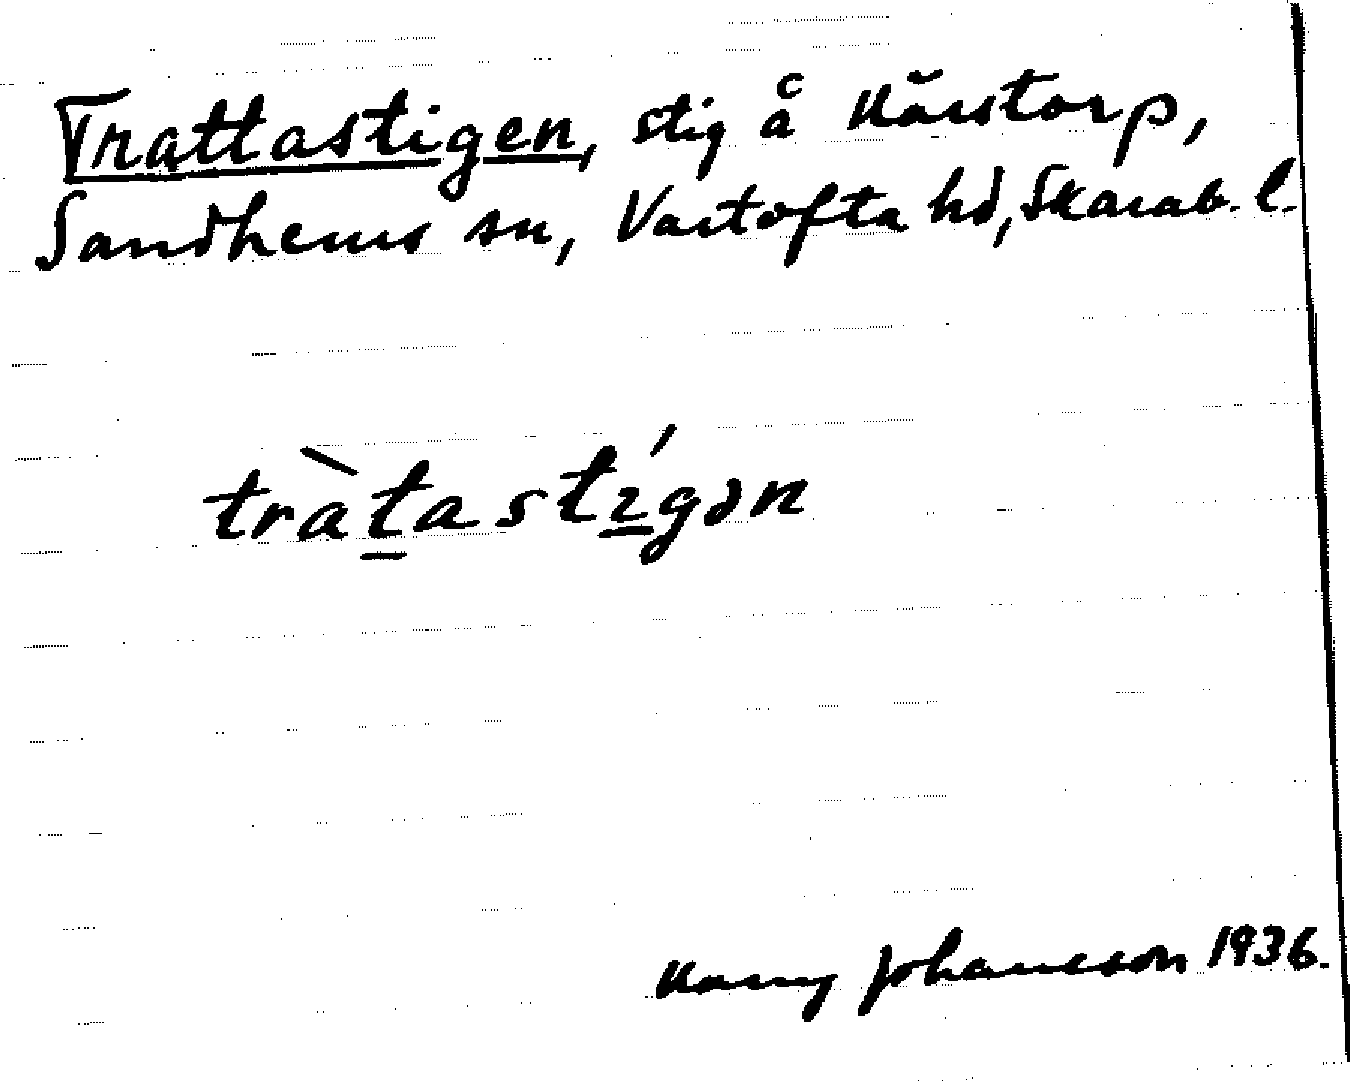 Trattastigen, stig å Kårstorp,
Sandhems sn, Vartofta hd, Skarab. l.
tràtastígən
Harry Johansson 1936.